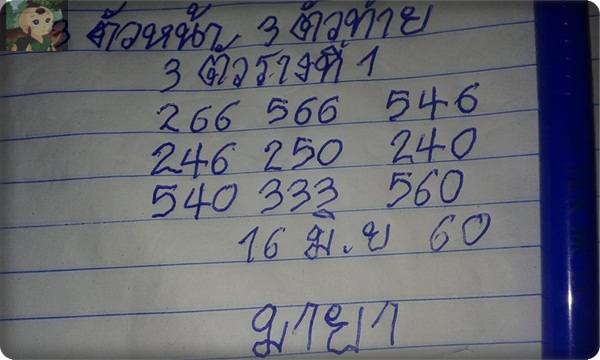 3 ตัวหน้า 3 ตัวท้าย
3 ตัวรางที่ 1
266 566 546
246 250 240
540 333 560
16 มิ.ย 60
มายา